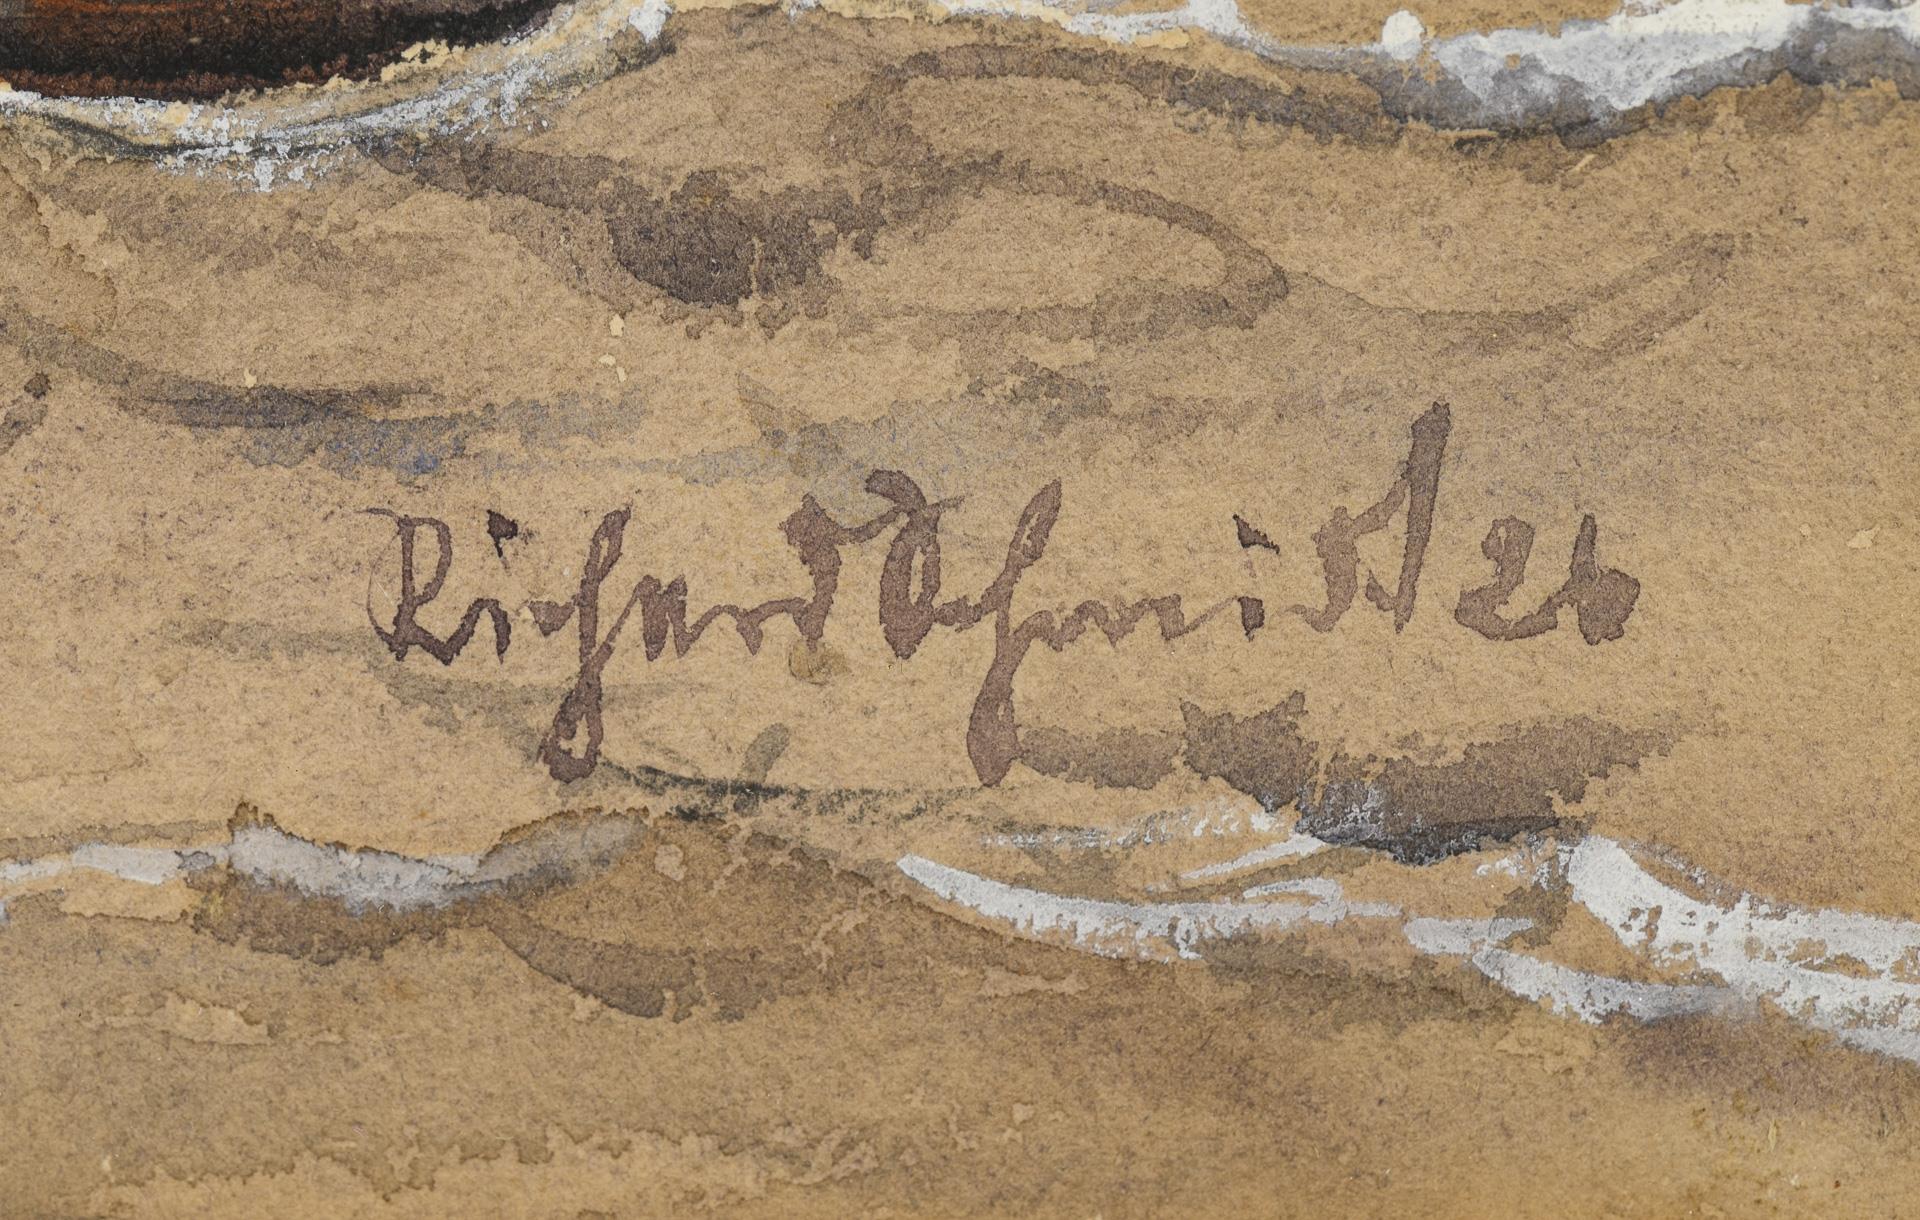 Richard Schmidt 26